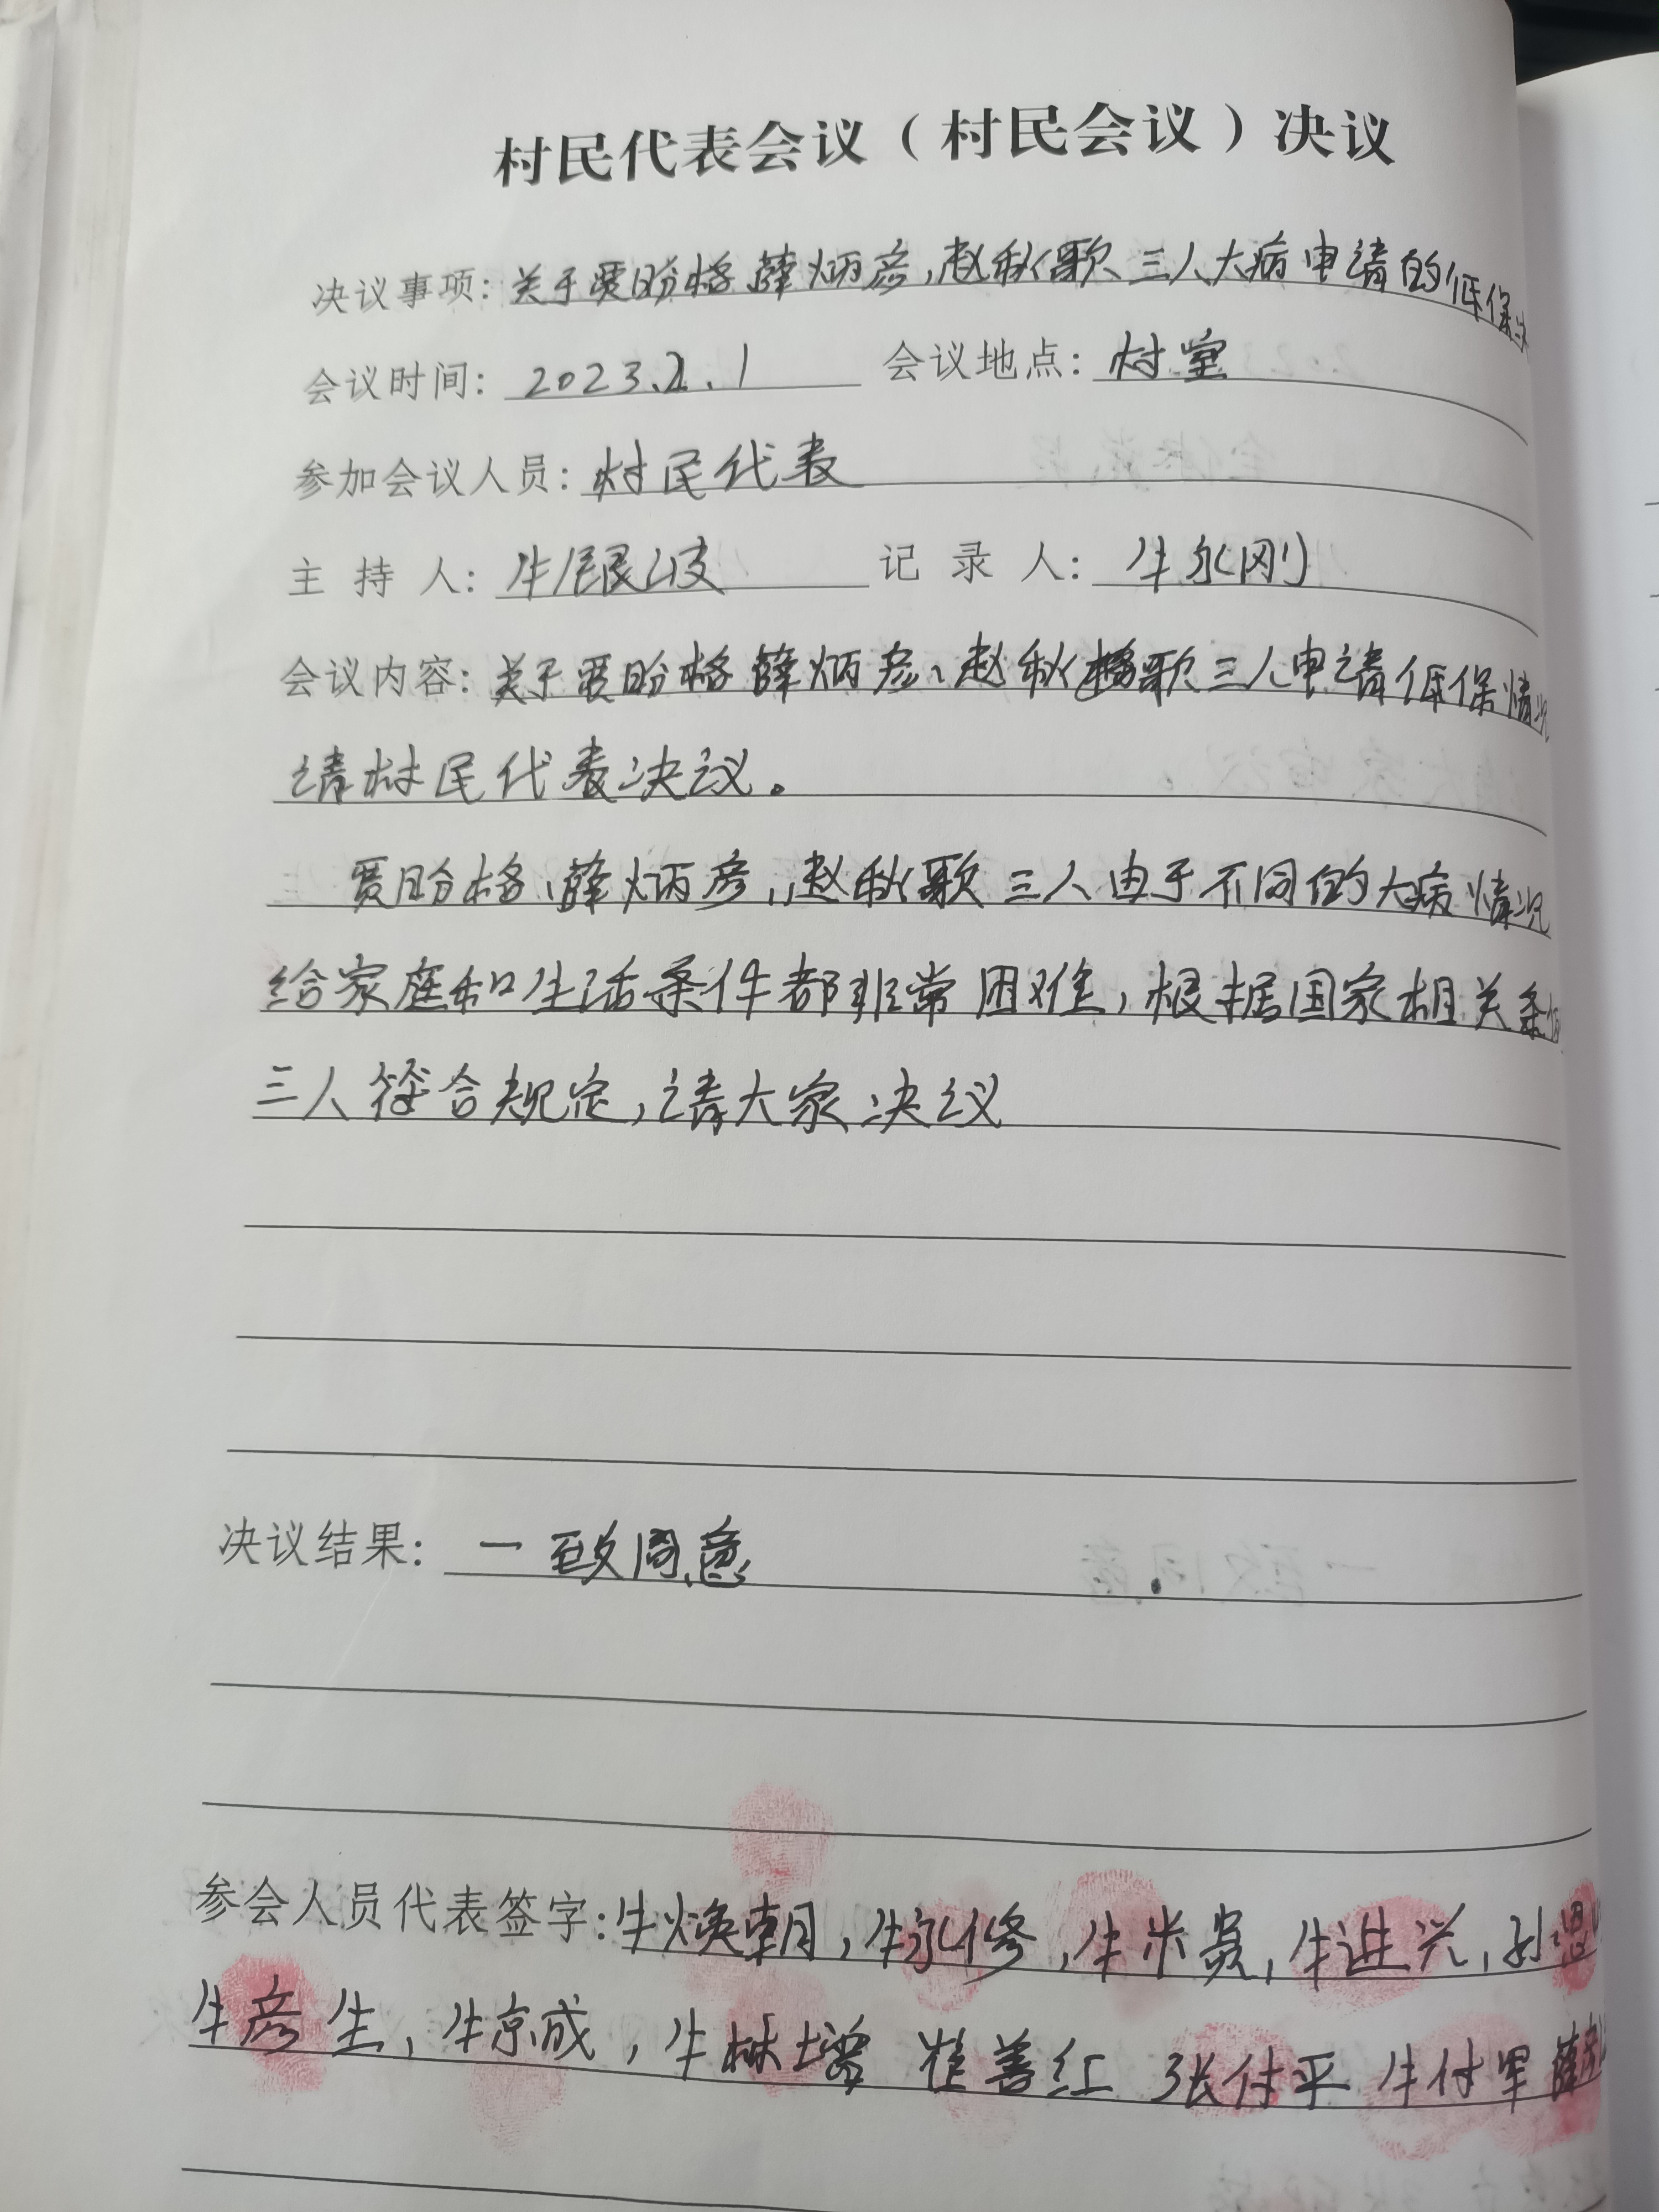 村民代表会议（村民会议）决议
决议事项：关于贾盼格、薛炳彦，赵秋歌三人大病申请的低保
会议时间：2023.2.1 会议地点：村室
参加会议人员：村民代表
主持人：牛 记录人：牛永刚
会议内容：关于贾盼格薛炳彦、赵秋歌三人申请低保情况
请村民代表决议。
贾盼格、薛炳彦，赵秋歌三人由于不同的大病情况
给家庭和生活条件都非常困难，根据国家相关条
三人符合规定，请大家决议
决议结果：一致同意
参会人员代表签字：牛焕朝，牛永修，牛米贵，牛进兴，孙
牛彦生，牛京成，牛林增 善红 张付平 牛付军 薛